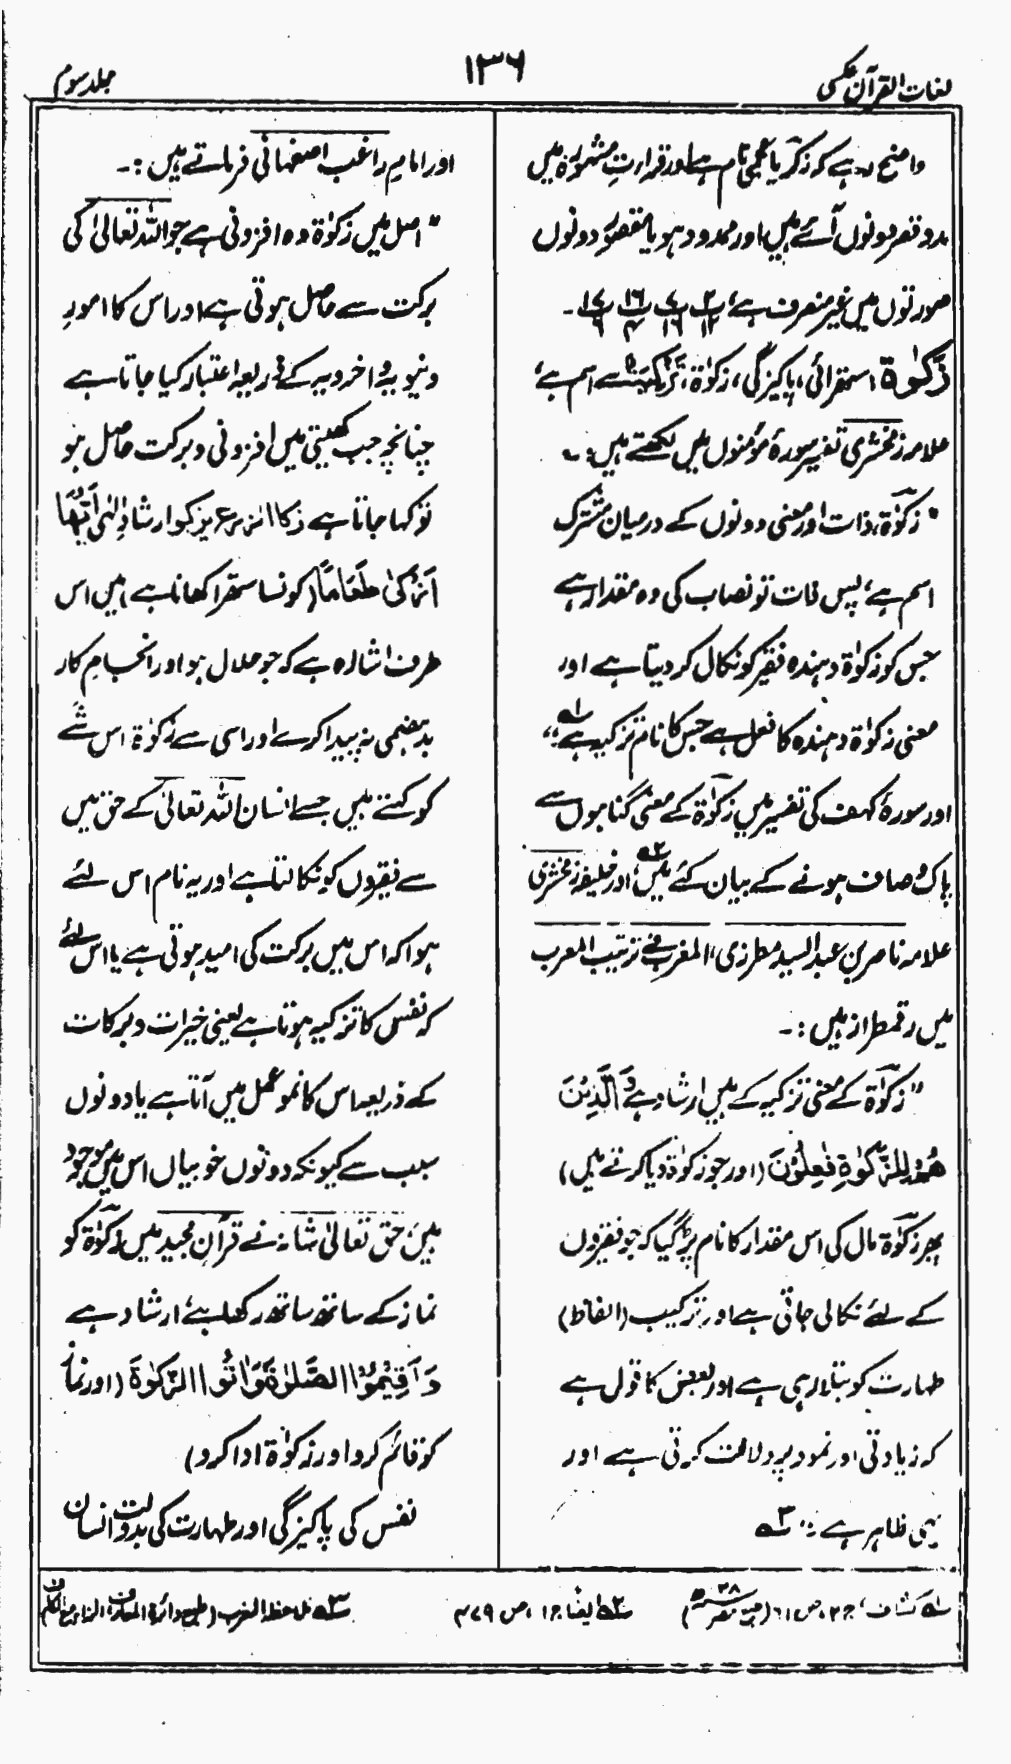 لغات القرآن عکسی
۱۳۶
جلد سوم
واضح رہے کہ زکریا عجمی نام ہے اور قراءتِ مشہورہ میں
مد و قصر دونوں آئے ہیں اور ممدود ہو یا مقصور دونوں
صورتوں میں غیر منصرف ہے،
زَکٰوۃ، ستھرائی، پاکیزگی، زکوٰۃ، تَزْکِیَۃٌ سے اسم ہے،
علامہ زمخشری تفسیر سورۂ مؤمنون میں لکھتے ہیں:۔
"زکوٰۃ، ذات اور معنی دونوں کے درمیان مشترک
اسم ہے، پس ذات تو نصاب کی وہ مقدار ہے
جس کو زکوٰۃ دہندہ فقیر کو نکال کر دیتا ہے اور
معنی زکوٰۃ دہندہ کا فعل ہے جس کا نام تزکیہ ہے،" ۱ـہ
اور سورۂ کہف کی تفسیر میں زکوٰۃ کے معنی گناہوں سے
پاک و صاف ہونے کے بیان کئے ہیں ۲ـہ اور خلیفہ زمخشری
علامہ ناصر بن عبد السید مطرزی، المغرب فی ترتیب المعرب
میں رقمطراز ہیں:۔
"زکوٰۃ کے معنی تزکیہ کے ہیں ارشاد ہے وَ الَّذِیْنَ
ھُمْ لِلزَّکٰوۃِ فٰعِلُوْنَ (اور جو زکوٰۃ دیا کرتے ہیں)
پھر زکوٰۃ مال کی اس مقدار کا نام پڑ گیا کہ جو فقیروں
کے لئے نکالی جاتی ہے اور ترکیب (الفاظ)
طہارت کو بتلا رہی ہے اور بعض کا قول ہے
کہ زیادتی اور نمو پر دلالت کرتی ہے اور
یہی ظاہر ہے:" ۳ـہ
اور امام راغب اصفہانی فرماتے ہیں:۔
"اصل میں زکوٰۃ وہ افزونی ہے جو اللہ تعالیٰ کی
برکت سے حاصل ہوتی ہے اور اس کا امورِ
دنیویہ و اخرویہ کے ذریعہ اعتبار کیا جاتا ہے
چنانچہ جب کھیتی میں افزونی و برکت حاصل ہو
تو کہا جاتا ہے زکا الزرع یزکو ارشادِ الٰہی اَیُّھَا
اَزْکٰی طَعَامًا (کونسا ستھرا کھانا ہے) میں اس
طرف اشارہ ہے کہ جو حلال ہو اور انجام کار
بدہضمی نہ پیدا کرے اور اسی سے زکوٰۃ اس شے
کو کہتے ہیں جسے انسان اللہ تعالیٰ کے حق میں
سے فقیروں کو نکالتا ہے اور یہ نام اس لئے
ہوا کہ اس میں برکت کی امید ہوتی ہے یا اس لئے
کہ نفس کا تزکیہ ہوتا ہے یعنی خیرات و برکات
کے ذریعہ اس کا نمو عمل میں آتا ہے یا دونوں
سبب سے کیونکہ دونوں خوبیاں اس میں موجود
ہیں حق تعالیٰ شانہ نے قرآن مجید میں زکوٰۃ کو
نماز کے ساتھ ساتھ رکھا ہے ارشاد ہے
وَ اَقِیْمُوا الصَّلٰوۃَ وَ اٰتُوا الزَّکٰوۃَ (اور نماز
کو قائم کرو اور زکوٰۃ ادا کرو)
نفس کی پاکیزگی اور طہارت کی بدولت انسان
۱ـہ کشاف، ج ۲، ص ۶۱ (طبع مصر)
۲ـہ ایضاً ج ۱، ص ۴۷۹
۳ـہ ملاحظہ المغرب (طبع دائرۃ المعارف